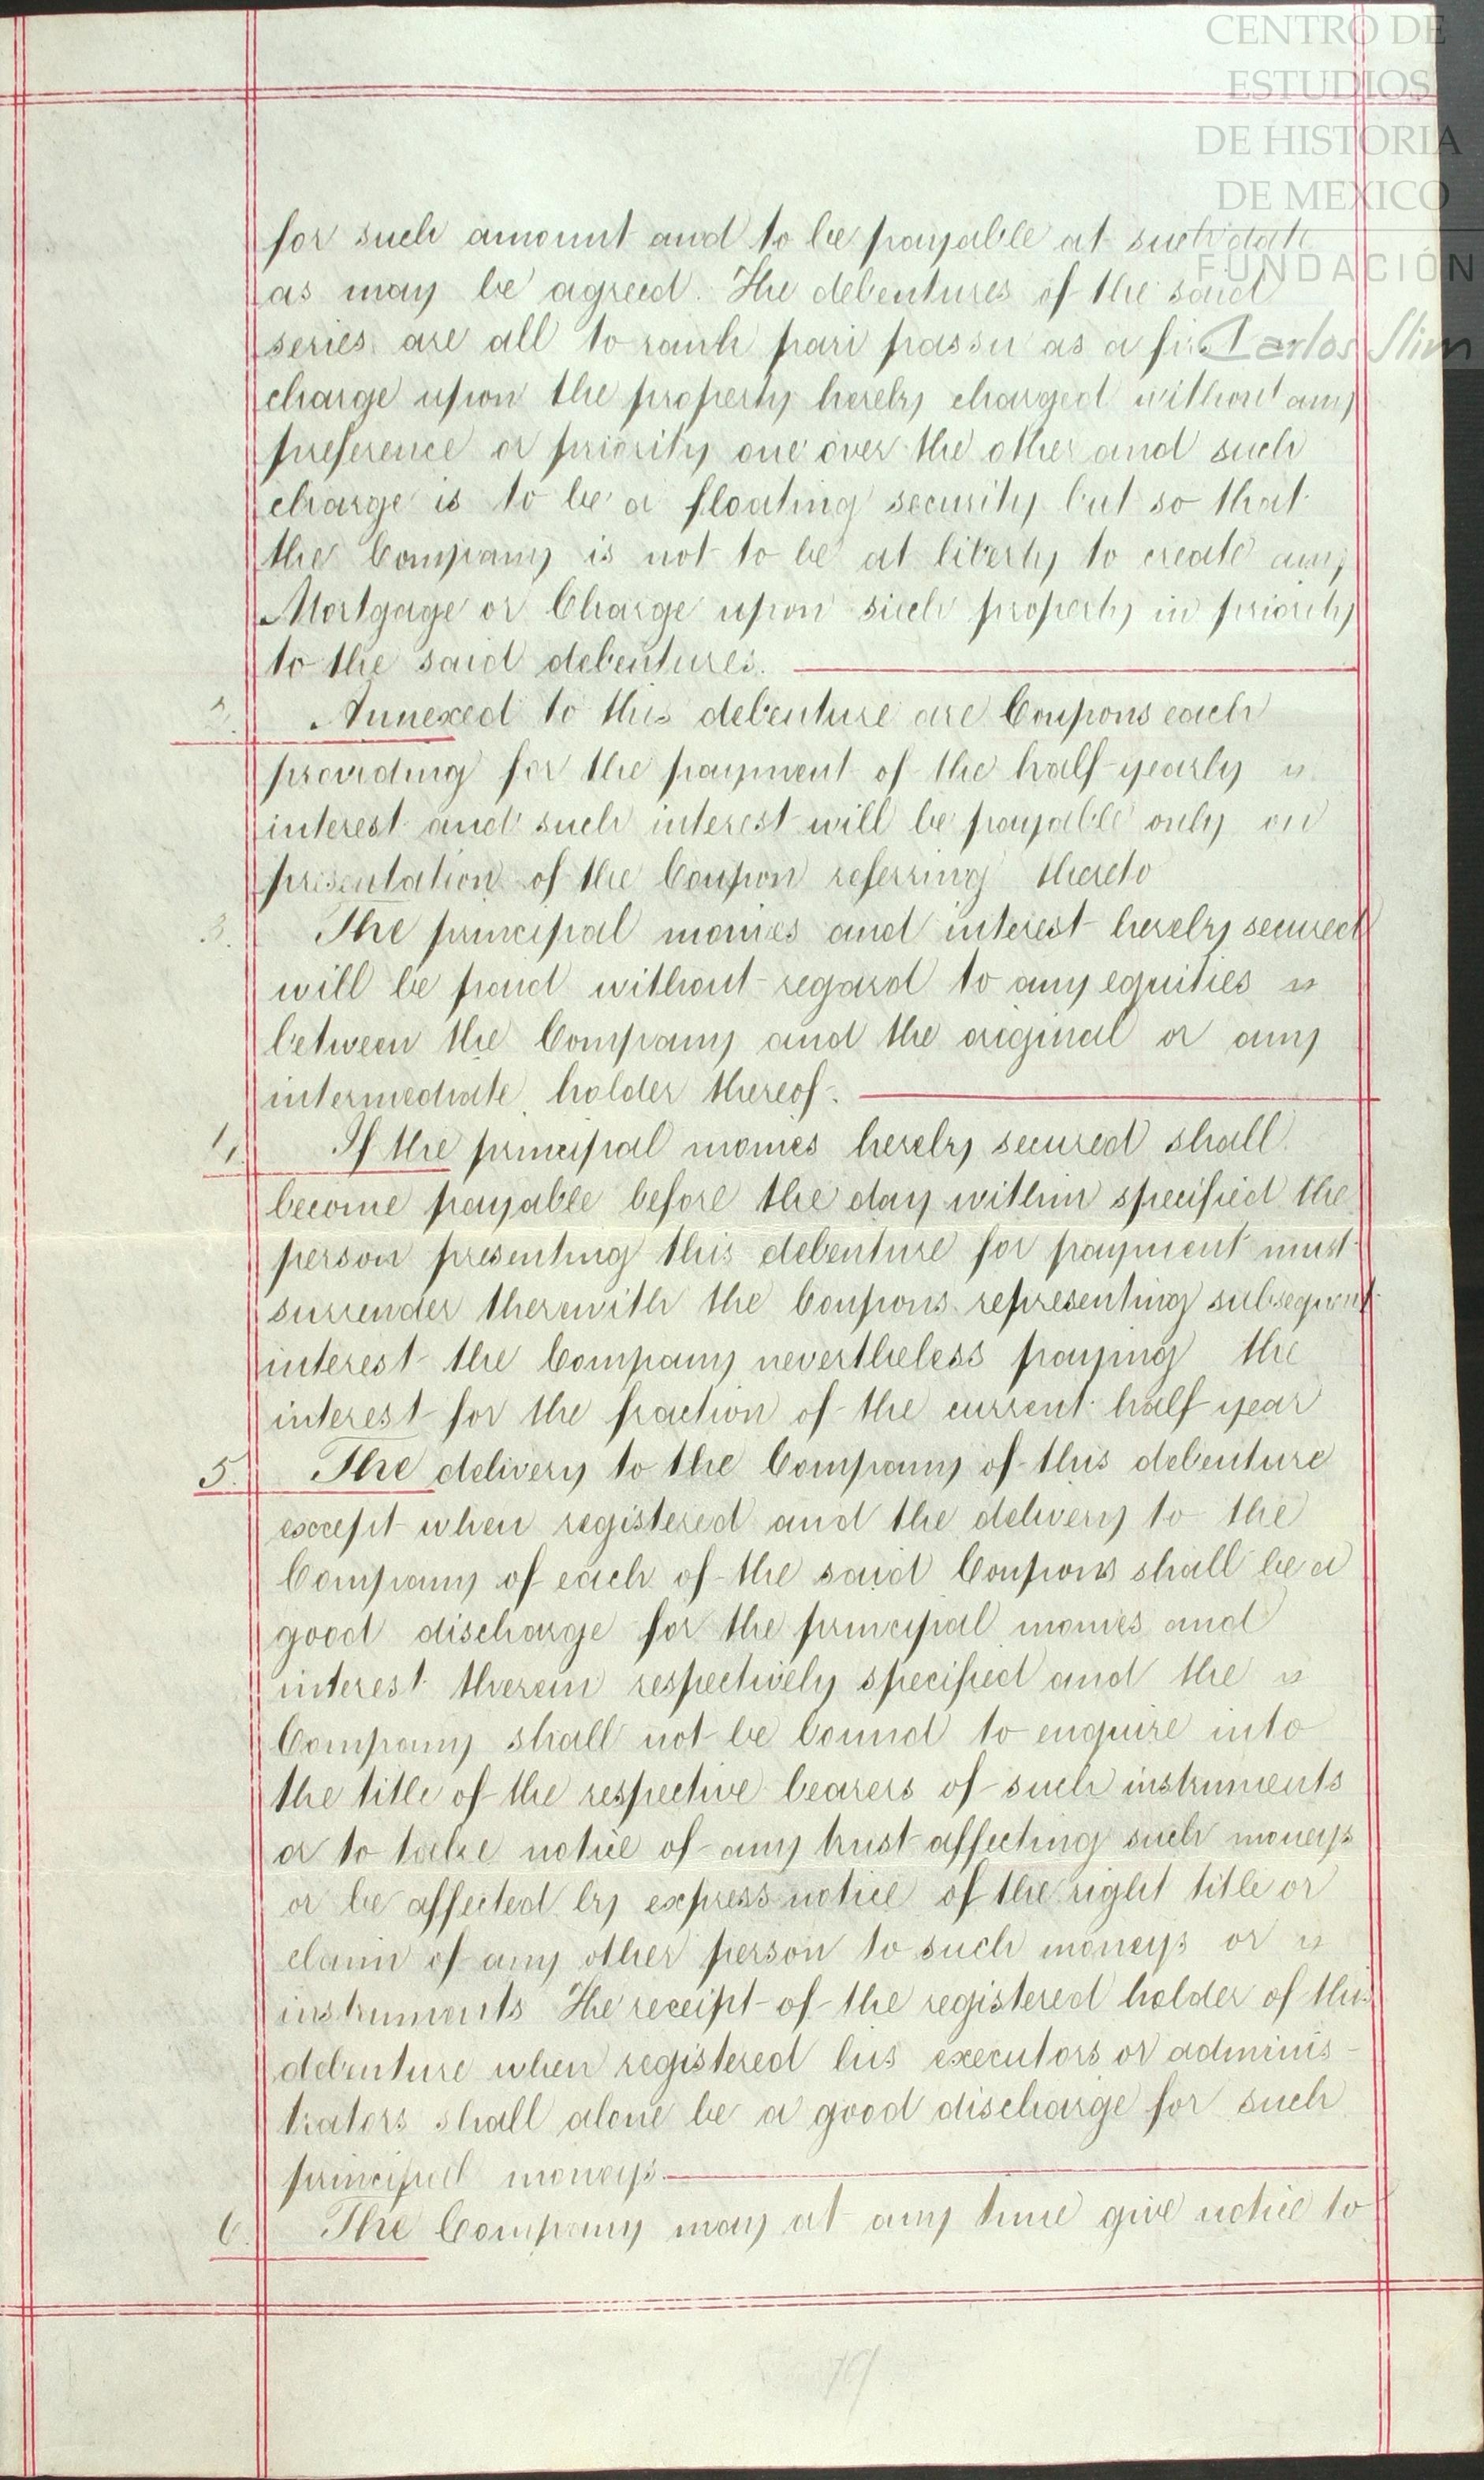 CENTRO DE
ESTUDIOS
DE HISTORIA
DE MEXICO
FUNDACIÓN
Carlos Slim
for such amount and to be payable at such date
as may be agreed. The debentures of the said
series are all to rank pari passu as a first
charge upon the property hereby charged without any
preference or priority one over the other and such
charge is to be a floating security but so that
the Company is not to be at liberty to create any
Mortgage or Charge upon such property in priority
to the said debentures.
2. Annexed to this debenture are Coupons each
providing for the payment of the half-yearly
interest and such interest will be payable only on
presentation of the Coupon referring thereto
3. The principal monies and interest hereby secured
will be paid without regard to any equities
between the Company and the original or any
intermediate holder thereof.
4. If the principal monies hereby secured shall
become payable before the day within specified the
person presenting this debenture for payment must
surrender therewith the Coupons representing subsequent
interest the Company nevertheless paying the
interest for the fraction of the current half year
5. The delivery to the Company of this debenture
except when registered and the delivery to the
Company of each of the said Coupons shall be a
good discharge for the principal monies and
interest therein respectively specified and the
Company shall not be bound to enquire into
the title of the respective bearers of such instruments
or to take notice of any trust affecting such moneys
or be affected by express notice of the right title or
claim of any other person to such moneys or
instruments The receipt of the registered holder of this
debenture when registered his executors or adminis-
trators shall alone be a good discharge for such
principal moneys.
6. The Company may at any time give notice to